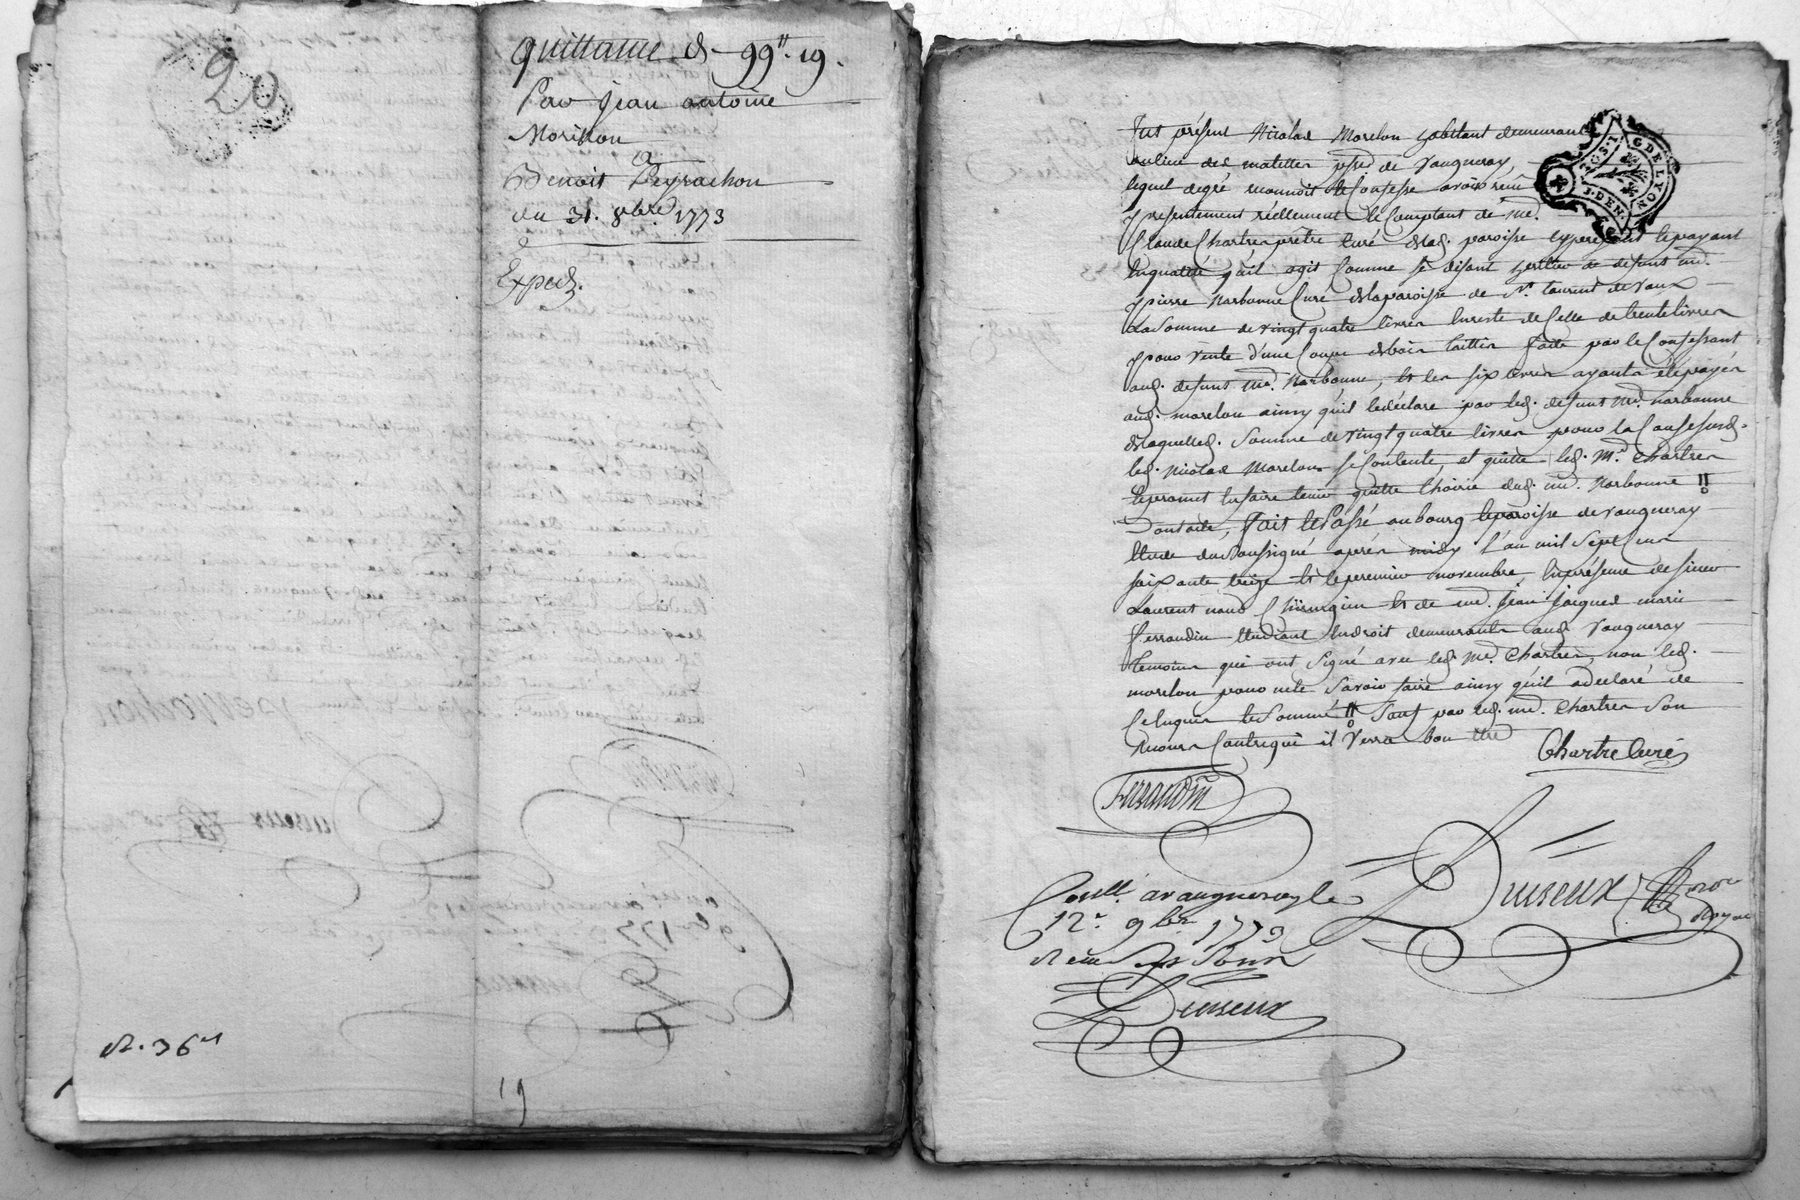 20
quittance d. 99ᵗᵗ. 19.
Par Jean antoine
Morillon
a
Benoit Peyrachon
du 31. 8bre. 1773
Exped.
R. 36 s
19
Fut présent Nicolas Morelon habitant demeurant
aulieu des mattes psse de Vaugneray,
lequel degré reconnoit & Confesse avoir reçu
presentement réellement & Comptant de me.
Claude Chartre prêtre Curé dlad. paroisse yprésent & payant
En qualité qu'il agit Comme se disant heritier de defunt me.
pierre Narbonne Curé dlaparoisse de St. laurent de Vaux
La Somme de vingt quatre livres Enreste de Celle de trente livres
pour vente d'une Coupe dbois taillis faite par le Confessant
aud. defunt me. Narbonne, & les six livres ayants été payés
aud. morelon ainsy qu'il ledéclare par led. defunt Me. narbonne
dlaquelled. Somme de vingt quatre livres pour la Cause susd.
led. Nicolas Morelon se Contente, et quitte led. Me. Chartre
& promet En faire tenir quitte l'hoirie dud. me. Narbonne !!
Dont acte, fait & Passé au bourg & paroisse de vaugneray
Etude du Soussigné après midy l'an mil Sept Cent
soixante treize & le premier novembre, En présence de sieur
Laurent Chirurgien & de me. Jean Jacques marie
ferrandin Etudiant En droit demeurants aud. Vaugneray
temoins qui ont signé avec led. Me. Chartre, non led.
morelon pour ne le Savoir faire ainsy qu'il a déclaré de
Ce Enquis & Sommé !! Sauf par led. me. Chartre Son
recours Contre qui il Verra bon Etre
Chartre Curé
ferrandin
Duiseux Nore
Royal
Conllé. a vaugneray le
12e. 9bre 1773
R
Duiseux
G DE LYON